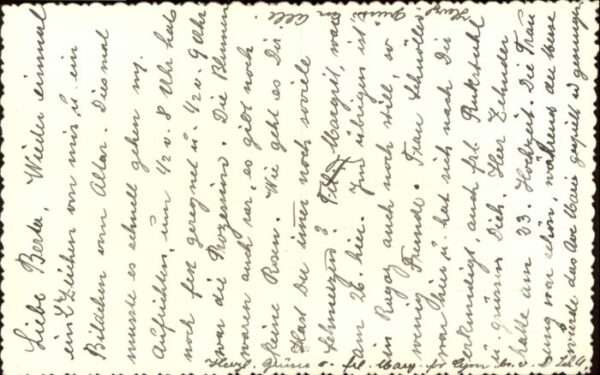 Liebe Berta, Wieder einmal
ein Zeichen von mir u. ein
Bildchen vom Altar. Diesmal
musste es schnell gehen mg.
Aufrichten, um 1/2 v. 8 Uhr hats
noch fest geregnet u. 1/2 v. 9 Uhr
war die Prozession. Die Blumen
waren auch rar, es gibt noch
keine Rosen. Wie geht es Dir
Hast Du immer noch soviele
Schmerzen? Margrit, war
am 26. hier. Im übrigen ist
in auch noch still, so
wenig Fremde. Frau
war hier u. hat sich nach Dir
erkundigt, auch frl. Ruckstuhl
u. grüssen Dich. Herr Zehnder
hatte am 23. Hochzeit. Die Trau
ung war schön, während der Messe
wurde das Ave Maria gespielt u. gesungen
Herzl. Grüsse
an alle.
Herzl. Grüsse v. frl. Mary.